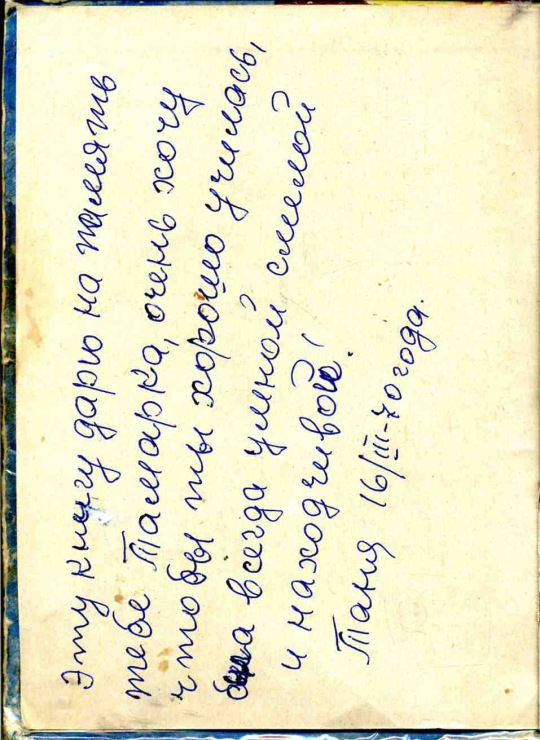 Эту книгу дарю на память
тебе Тамарка, очень хочу
чтобы ты хорошо училась,
была всегда умной смелой
и находчивой!
Таня 16/III-70 года.